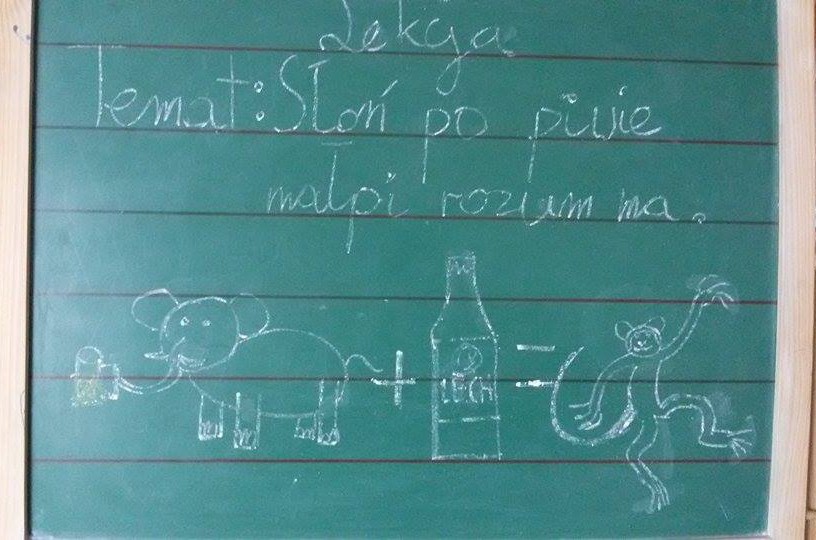 Lekcja
Temat: Słoń po piwie
małpi rozum ma.
LECH